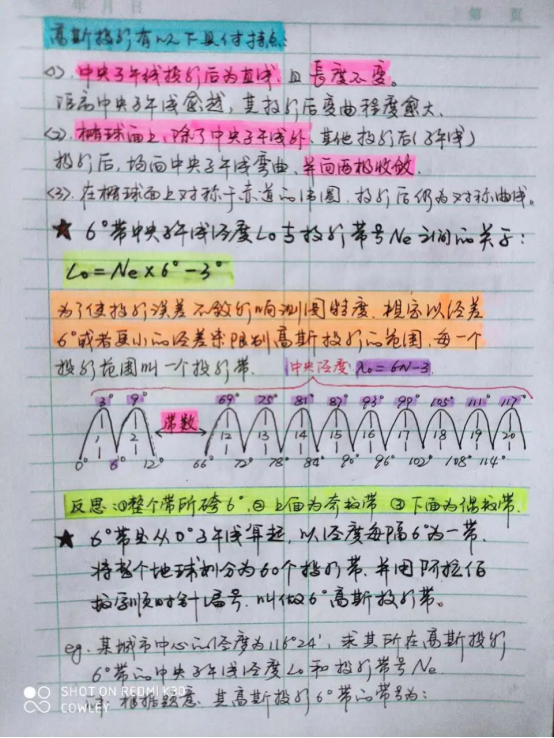 年 月 日
第 页
高斯投影有以下具体特点:
<1>. 中央子午线投影后为直线,且长度不变。
距离中央子午线愈越,其投影后弯曲程度愈大.
<2>. 椭球面上,除了中央子午线外,其他投影后(子午线)
投影后,均向中央子午线弯曲,并向两极收敛.
<3>. 在椭球面上对称于赤道的纬圈,投影后仍为对称曲线。
★ 6°带中央子午线经度L₀与投影带号Ne之间的关于:
L₀=Ne×6°-3°
为了使投影误差不致影响测图精度,规定以经差
6°或者更小的经差来限制高斯投影的范围,每一个
投影范围叫一个投影带. 中央经度:λ₀=6N-3.
3° 9° 69° 75° 81° 87° 93° 99° 105° 111° 117°
1 2 带数 12 13 14 15 16 17 18 19 20
0° 6° 12° 66° 72° 78° 84° 90° 96° 102° 108° 114°
反思:①整个带所跨6°.②上面为奇数带 ③下面为偶数带.
★ 6°带是从0°子午线算起,以经度每隔6°为一带.
将整个地球划分为60个投影带.并用阿拉伯
数字顺时针编号.叫做6°高斯投影带。
eg. 某城市中心的经度为116°24′,求其所在高斯投影
6°带的中央子午线经度L₀和投影带号Ne.
根据题意.其高斯投影6°带的带号为:
SHOT ON REDMI K30
COWLEY